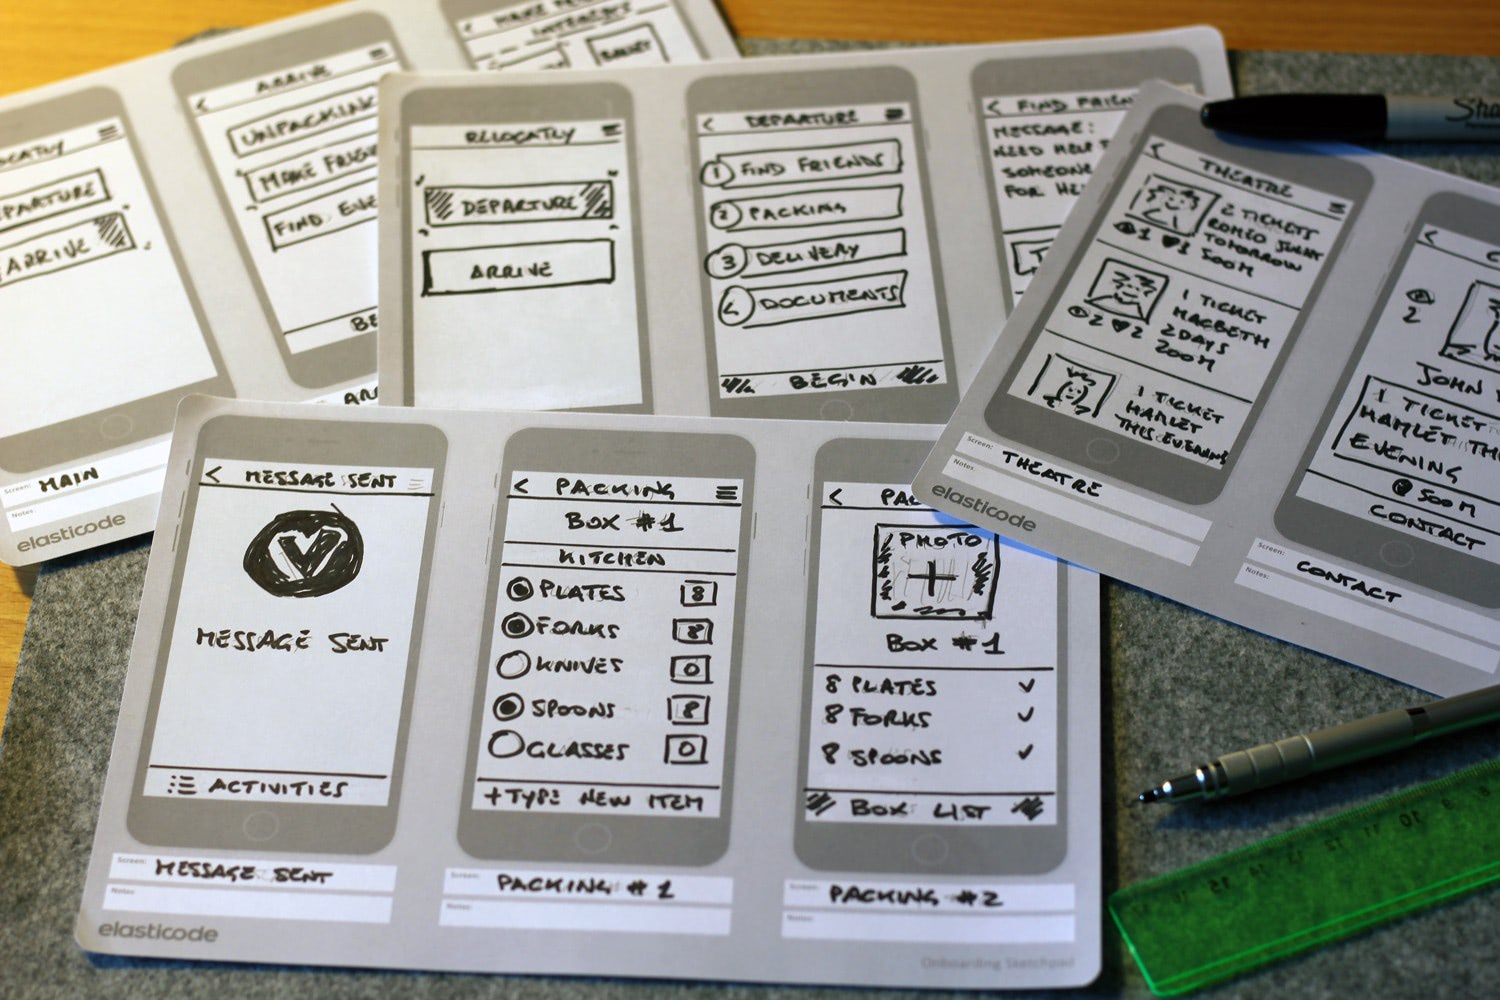 ARRIVE
UNPACKING
MAKE
FIND
MAIN
Screen:
Notes:
elasticode
RELOCATLY
DEPARTURE
ARRIVE
< DEPARTURE
1 FIND FRIENDS
2 PACKING
3 DELIVERY
4 DOCUMENTS
BEGIN
< FIND
MESSAGE:
NEED HELP
SOMEONE
FOR
< THEATRE
2 TICKETS
ROMEO
TOMORROW
500M
1 1
1 TICKET
MACBETH
2 DAYS
200M
2 2
1 TICKET
HAMLET
THIS EVENING
Screen: THEATRE
Notes:
elasticode
2
JOHN
1 TICKET
HAMLET
EVENING
@ 500M
CONTACT
Screen: CONTACT
Notes:
< MESSAGE SENT
MESSAGE SENT
ACTIVITIES
Screen: MESSAGE SENT
Notes
elasticode
< PACKING
BOX #1
KITCHEN
PLATES 8
FORKS 8
KNIVES 0
SPOONS 8
GLASSES 0
+ TYPE NEW ITEM
Screen: PACKING #1
Notes:
<
PHOTO
+
BOX #1
8 PLATES ✓
8 FORKS ✓
8 SPOONS ✓
BOX LIST
Screen: PACKING #2
Notes:
Onboarding Sketchpad